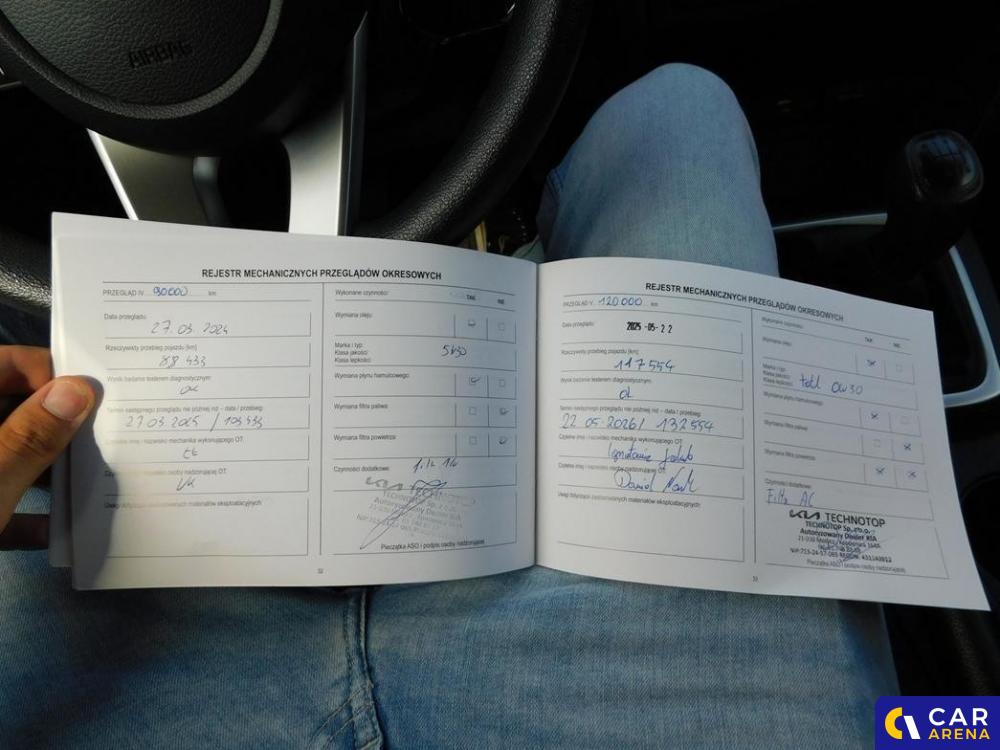 AIRBAG
REJESTR MECHANICZNYCH PRZEGLĄDÓW OKRESOWYCH
PRZEGLĄD IV 90000 km
Data przeglądu:
27.03.2024
Rzeczywisty przebieg pojazdu [km]
88 433
Wynik badania testerem diagnostycznym:
ok
Termin następnego przeglądu nie później niż - data / przebieg:
27.03.2025 / 103433
Czytelne imię i nazwisko mechanika wykonującego OT:
Czytelne imię i nazwisko osoby nadzorującej OT:
Uwagi dotyczące zastosowanych materiałów eksploatacyjnych:
Wykonane czynności: TAK NIE
Wymiana oleju:
Marka i typ:
Klasa jakości: 5W30
Klasa lepkości:
Wymiana płynu hamulcowego:
Wymiana filtra paliwa:
Wymiana filtra powietrza:
Czynności dodatkowe:
KIA TECHNOTOP
TECHNOTOP Sp. z o.o.
Autoryzowany Dealer KIA
Pieczątka ASO i podpis osoby nadzorującej
32
REJESTR MECHANICZNYCH PRZEGLĄDÓW OKRESOWYCH
PRZEGLĄD V 120 000 km
Data przeglądu: 2025-05-22
Rzeczywisty przebieg pojazdu [km]
117554
Wynik badania testerem diagnostycznym:
ok
Termin następnego przeglądu nie później niż - data / przebieg:
22 05.2026 / 132554
Czytelne imię i nazwisko mechanika wykonującego OT:
Czytelne imię i nazwisko osoby nadzorującej OT:
Daniel
Uwagi dotyczące zastosowanych materiałów eksploatacyjnych:
Wykonane czynności: TAK NIE
Wymiana oleju:
Marka i typ:
Klasa jakości: total 0W30
Klasa lepkości:
Wymiana płynu hamulcowego:
Wymiana filtra paliwa:
Wymiana filtra powietrza:
Czynności dodatkowe:
Filtr AC
KIA TECHNOTOP
TECHNOTOP Sp. z o.o.
Autoryzowany Dealer KIA
Pieczątka ASO i podpis osoby nadzorującej
33
CAR
ARENA